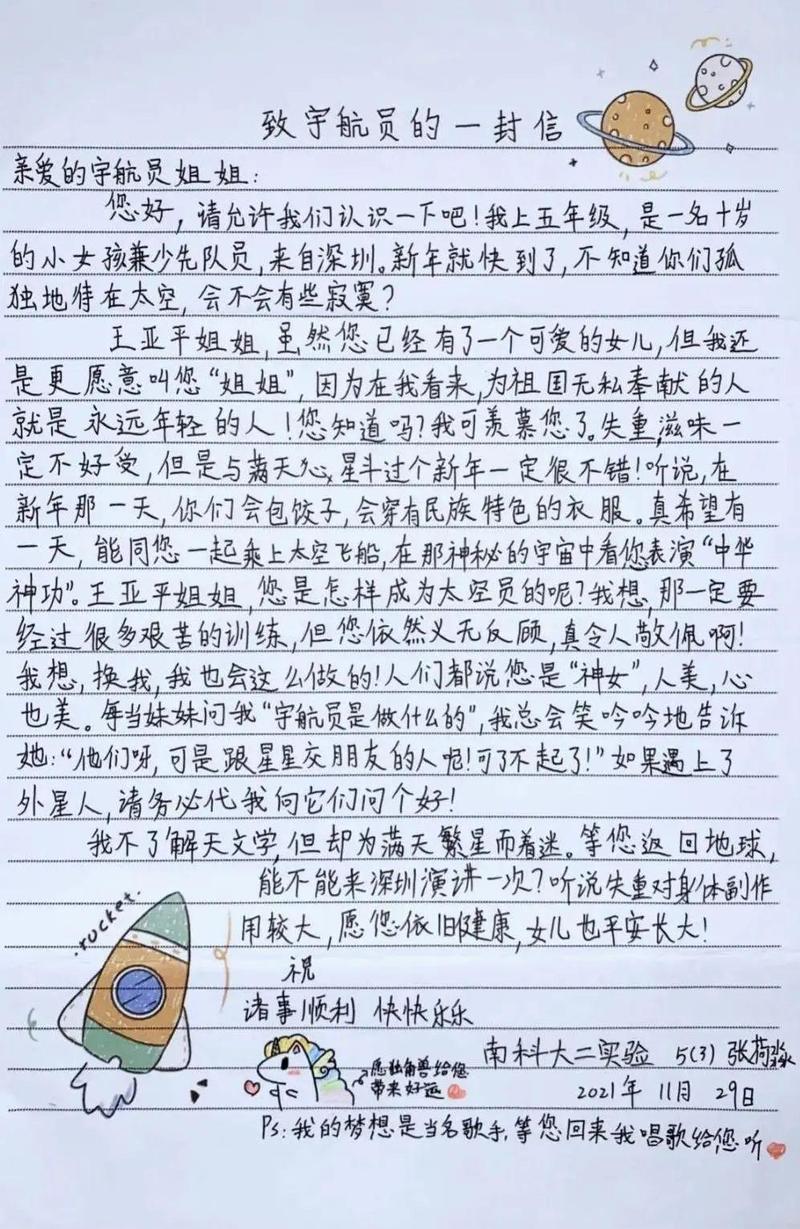 致宇航员的一封信
亲爱的宇航员姐姐：
您好，请允许我们认识一下吧！我上五年级，是一名十岁
的小女孩兼少先队员，来自深圳。新年就快到了，不知道你们孤
独地待在太空，会不会有些寂寞？
王亚平姐姐，虽然您已经有了一个可爱的女儿，但我还
是更愿意叫您“姐姐”，因为在我看来，为祖国无私奉献的人
就是永远年轻的人！您知道吗？我可羡慕您了。失重滋味一
定不好受，但是与满天星斗过个新年一定很不错！听说，在
新年那一天，你们会包饺子，会穿有民族特色的衣服。真希望有
一天，能同您一起乘上太空飞船，在那神秘的宇宙中看您表演“中华
神功”。王亚平姐姐，您是怎样成为太空员的呢？我想，那一定要
经过很多艰苦的训练，但您依然义无反顾，真令人敬佩啊！
我想，换我，我也会这么做的！人们都说您是“神女”，人美，心
也美。每当妹妹问我“宇航员是做什么的”，我总会笑吟吟地告诉
她：“他们呀，可是跟星星交朋友的人呢！可了不起了！”如果遇上了
外星人，请务必代我向它们问个好！
我不了解天文学，但却为满天繁星而着迷。等您返回地球，
能不能来深圳演讲一次？听说失重对身体副作
用较大，愿您依旧健康，女儿也平安长大！
.rocket.
祝
诸事顺利 快快乐乐
南科大二实验 5(3) 张荷淼
愿独角兽给您
带来好运
2021年 11月 29日
Ps：我的梦想是当名歌手，等您回来我唱歌给您听